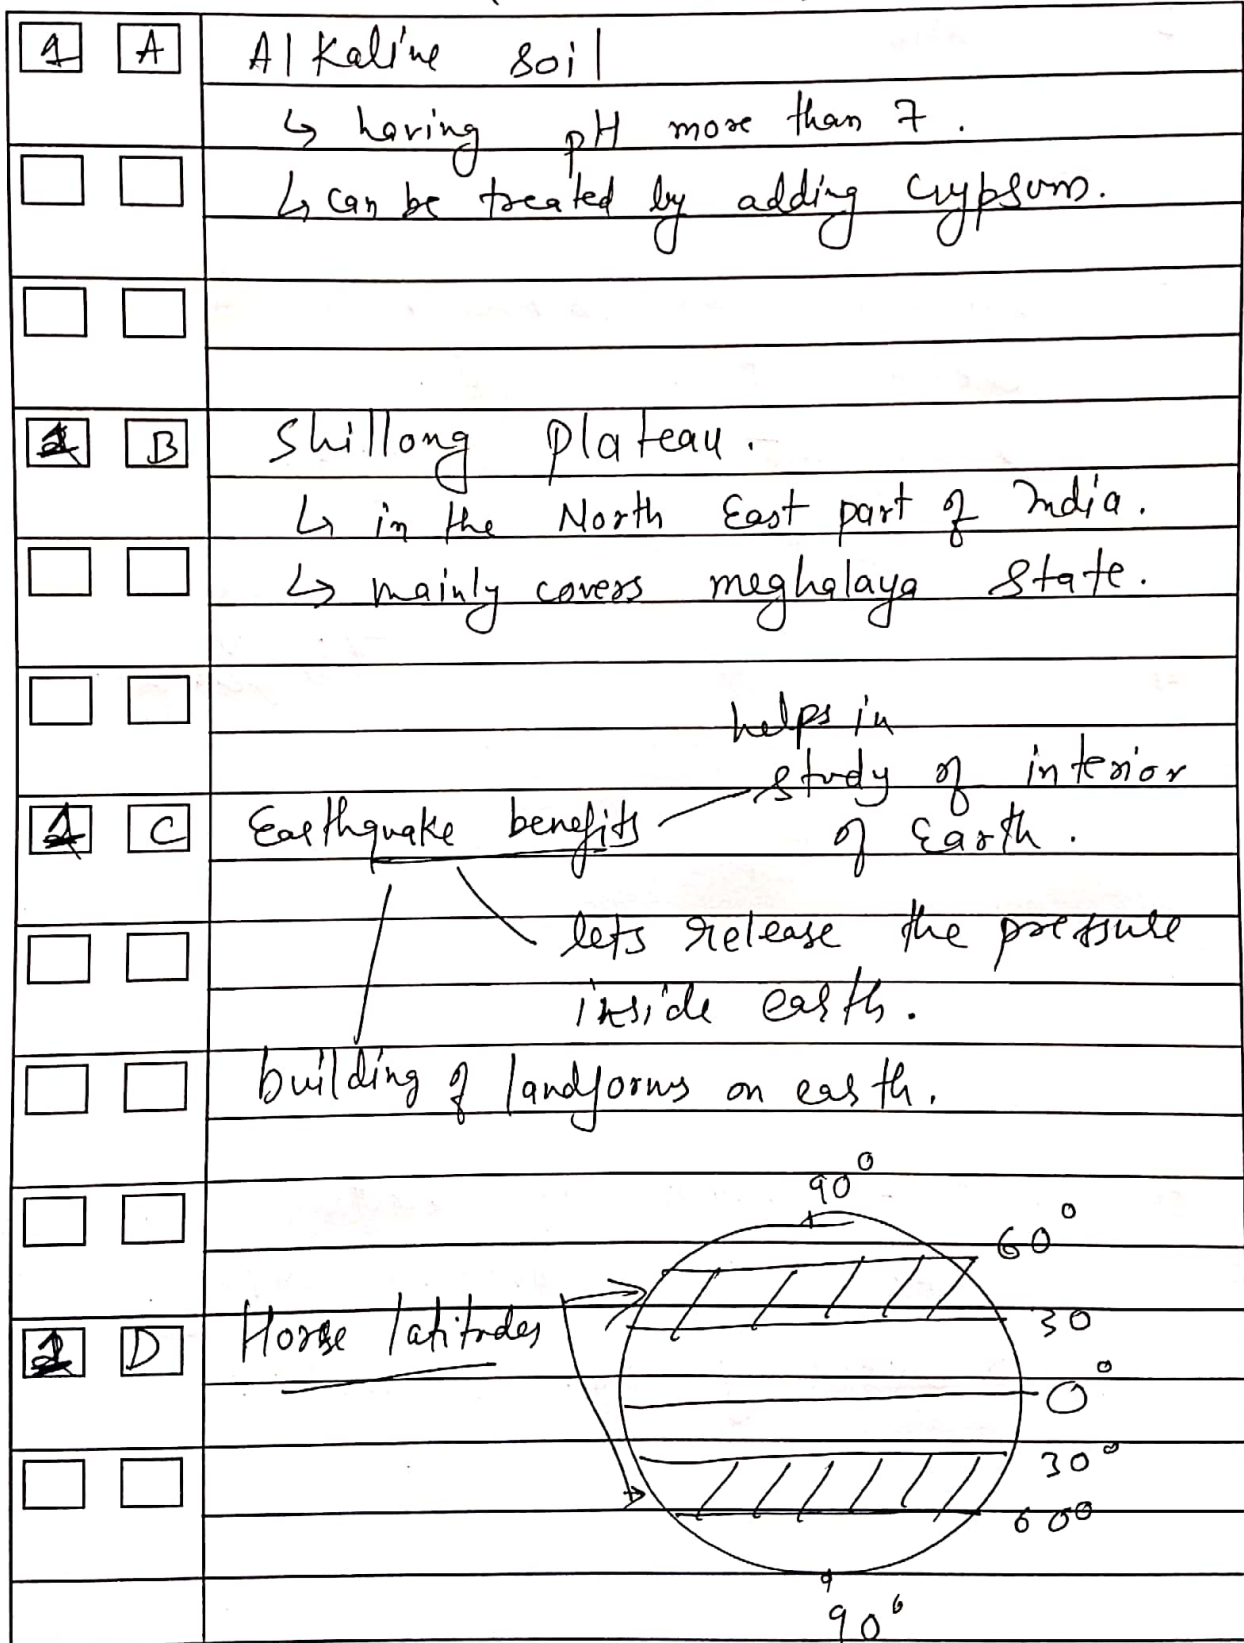 1 A Alkaline soil
↳ having pH more than 7.
↳ can be treated by adding Gypsum.
1 B Shillong Plateau.
↳ in the North East part of India.
↳ mainly covers meghalaya State.
helps in
study of interior
1 C Earthquake benefits of Earth.
lets release the pressure
inside earth.
building of landforms on earth.
90°
60°
1 D Horse latitudes 30
0°
30°
60°
90°